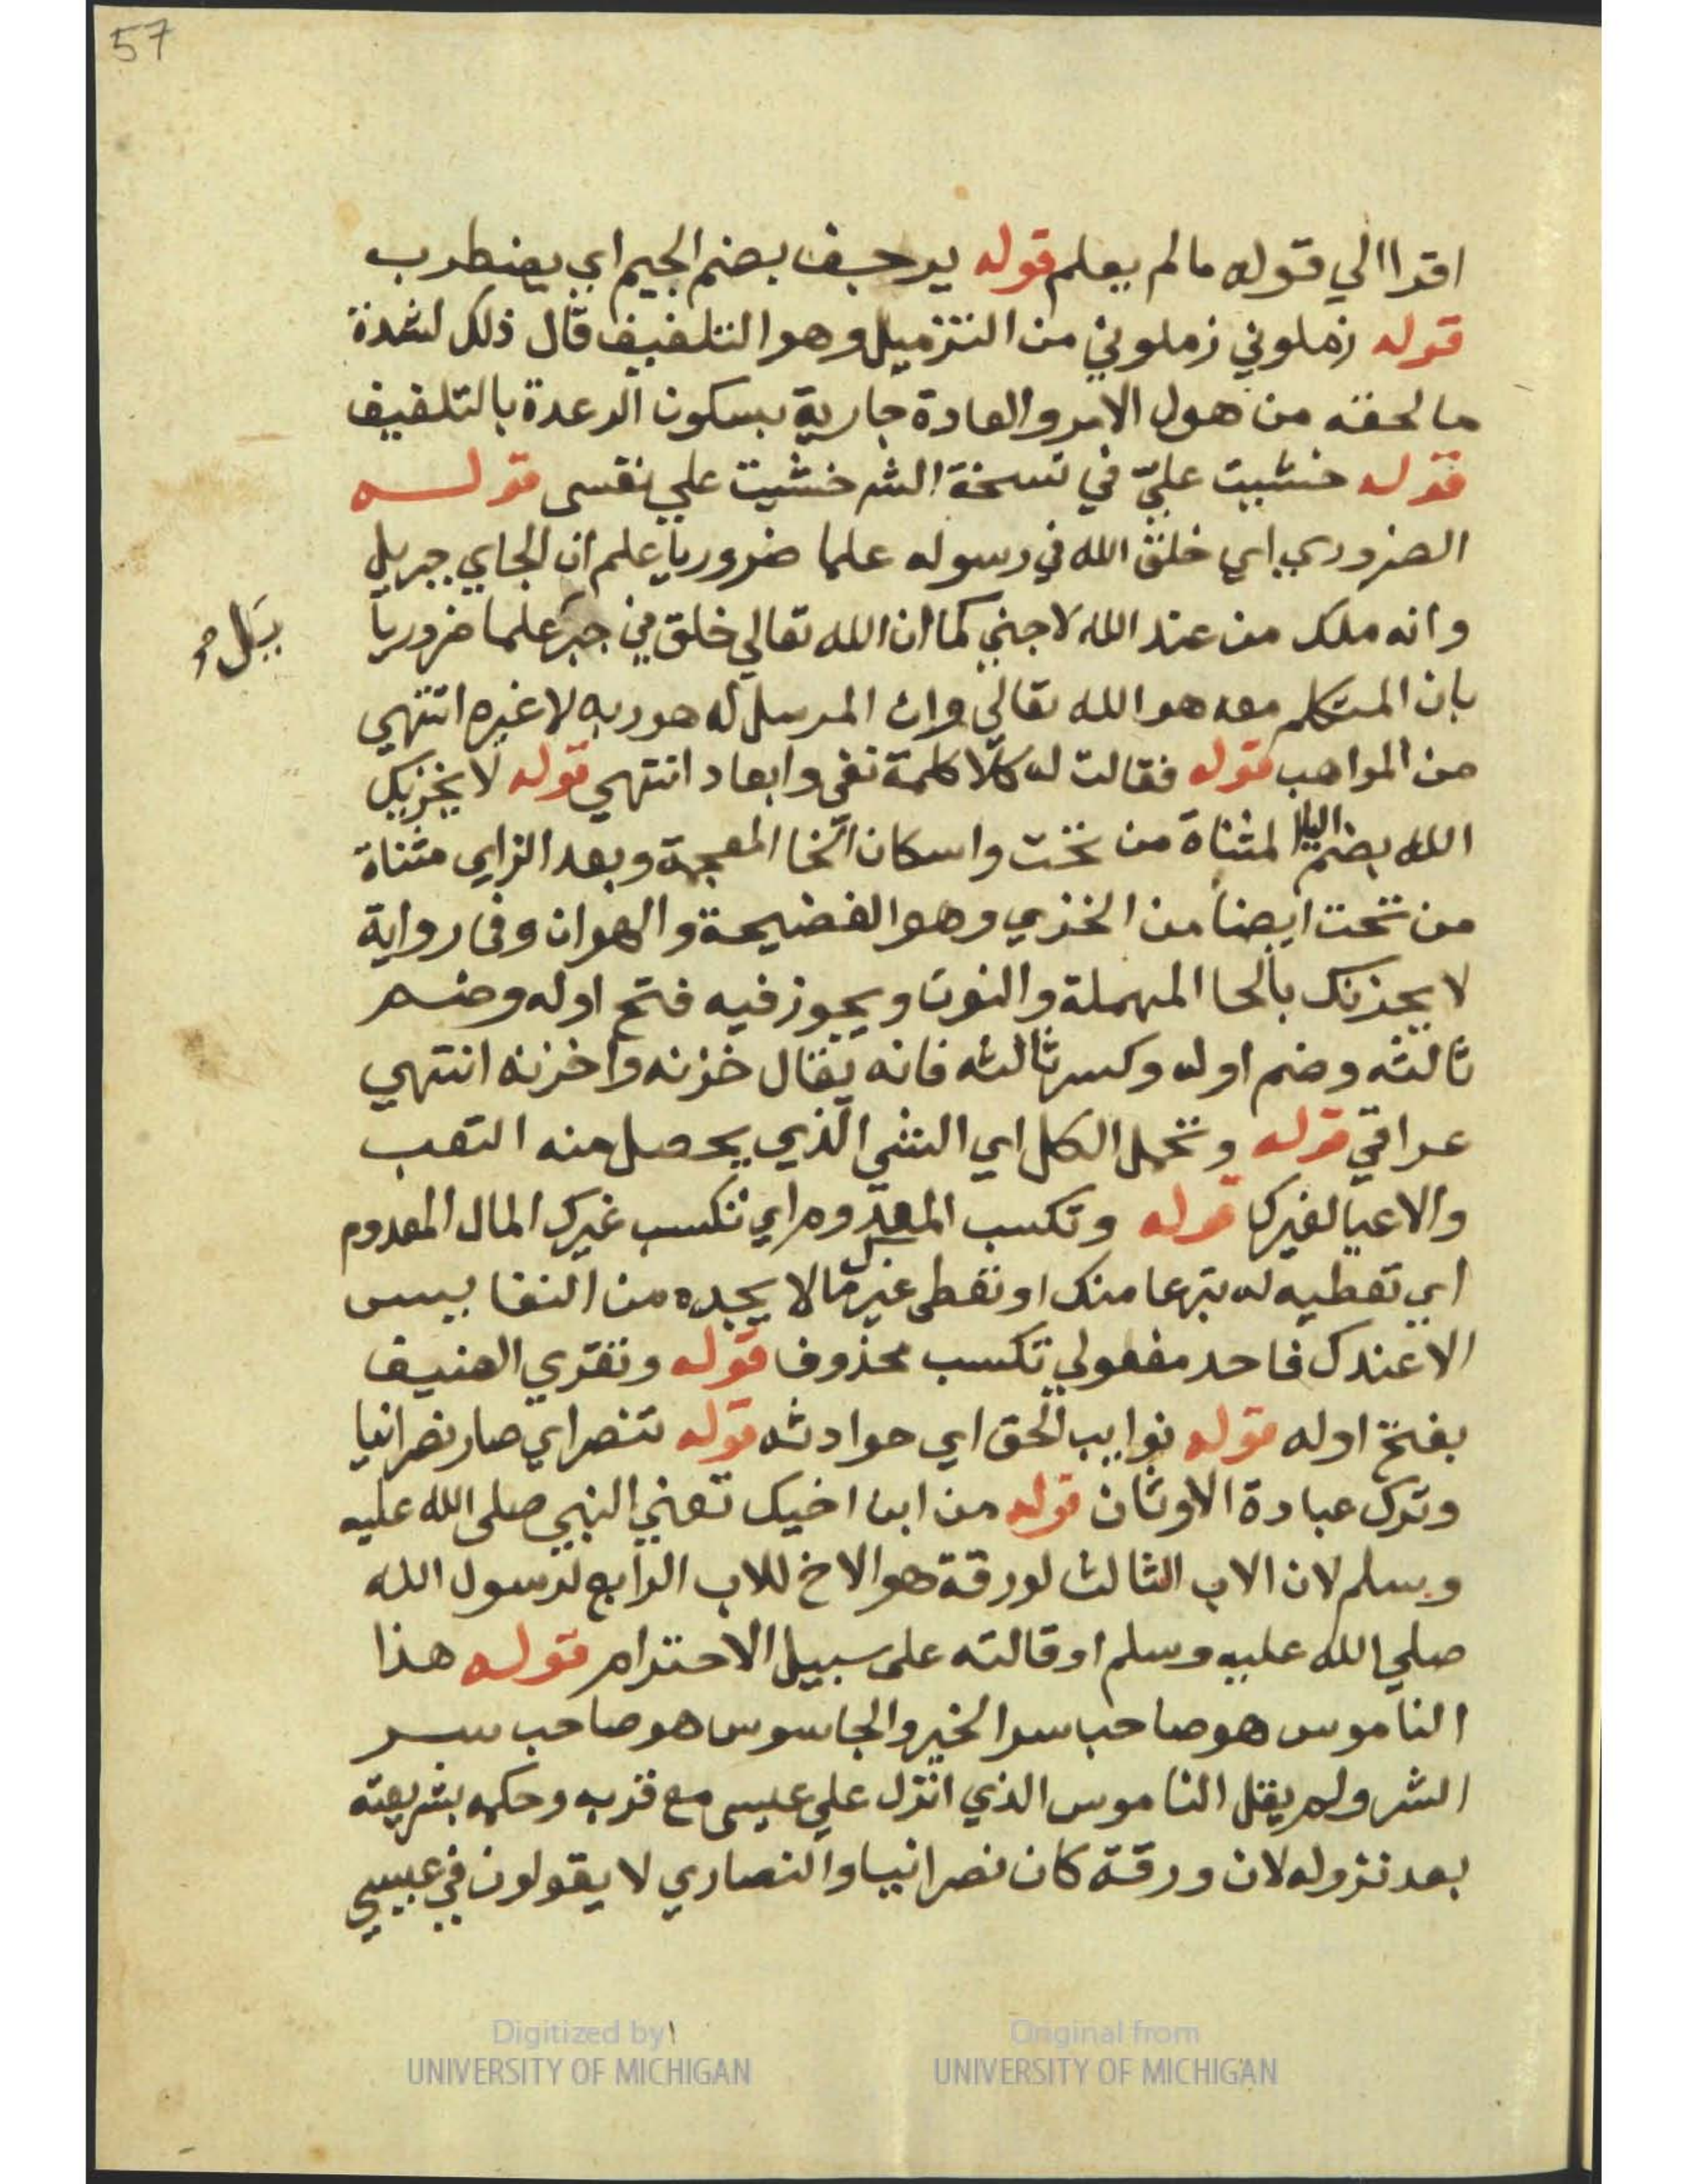 57
اقرا الي قوله مالم يعلم قوله يرجف بضم الجيم اي يضطرب
قوله زملوني زملوني من التزميل وهو التلفيف قال ذلك لشدة
مالحقه من هول الامر والعادة جارية بسكون الرعدة بالتلفيف
قوله خشيت عليّ في نسخة الشر خشيت علي نفسي قوله
الضروري اي خلق الله في رسوله علما ضروريا علم ان الجاي جبريل
وانه ملك من عند الله لا جني كما ان الله تعالي خلق في جبر علما ضروريا
يل
بان المتكلم معه هو الله تعالي وان المرسل له هو ربه لا غيره انتهي
من المواهب قوله فقالت له كلا كلمة نفي وابعاد انتهي قوله لا يخزيك
الله بضم اليا المثناة من تحت واسكان الخا المعجمة وبعد الزاي مثناة
من تحت ايضا من الخزي وهو الفضيحة والهوان وفي رواية
لا يحزنك بالحا المهملة والنون ويجوز فيه فتح اوله وضم
ثالثه وضم اوله وكسر ثالثه فانه يقال خزنه واخزنه انتهي
عراقي قوله وتحمل الكل اي الشي الذي يحصل منه التعب
والاعيا لغيرك قوله وتكسب المعدوم اي تكسب غيرك المال المعدوم
اي تعطيه له تبرعا منك او تعطي غيرك مالا يجده من النفايس
الا عندك فاحد مفعولي تكسب محذوف قوله وتقري الضيف
بفتح اوله قوله نوايب الحق اي حوادثه قوله تنصر اي صار نصرانيا
وترك عبادة الاوثان قوله من ابن اخيك تعني النبي صلى الله عليه
وسلم لان الاب الثالث لورقة هو الاخ للاب الرابع لرسول الله
صلي الله عليه وسلم او قالته على سبيل الاحترام قوله هذا
الناموس هو صاحب سر الخير والجاسوس هو صاحب سر
الشر ولم يقل الناموس الذي انزل علي عيسى مع قربه وحكمه بشريعته
بعد نزوله لان ورقة كان نصرانيا والنصاري لا يقولون في عيسي
Digitized by
UNIVERSITY OF MICHIGAN
Original from
UNIVERSITY OF MICHIGAN